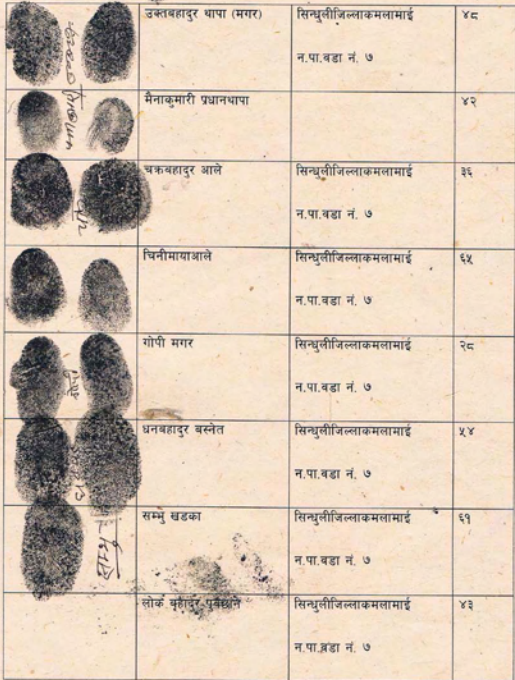 उक्तबहादुर थापा (मगर) सिन्धुलीजिल्लाकमलामाई ४८
न.पा.वडा नं. ७
मैनाकुमारी प्रधानथापा ४२
चक्रबहादुर आले सिन्धुलीजिल्लाकमलामाई ३६
न.पा.वडा नं. ७
चिनीमायाआले सिन्धुलीजिल्लाकमलामाई ६५
न.पा.वडा नं. ७
गोपी मगर सिन्धुलीजिल्लाकमलामाई २८
न.पा.वडा नं. ७
धनबहादुर बस्नेत सिन्धुलीजिल्लाकमलामाई ५४
न.पा.वडा नं. ७
सम्भु खडका सिन्धुलीजिल्लाकमलामाई ६१
सम्भु
न.पा.वडा नं. ७
लोक बहादुर सिन्धुलीजिल्लाकमलामाई ४३
न.पा.वडा नं. ७